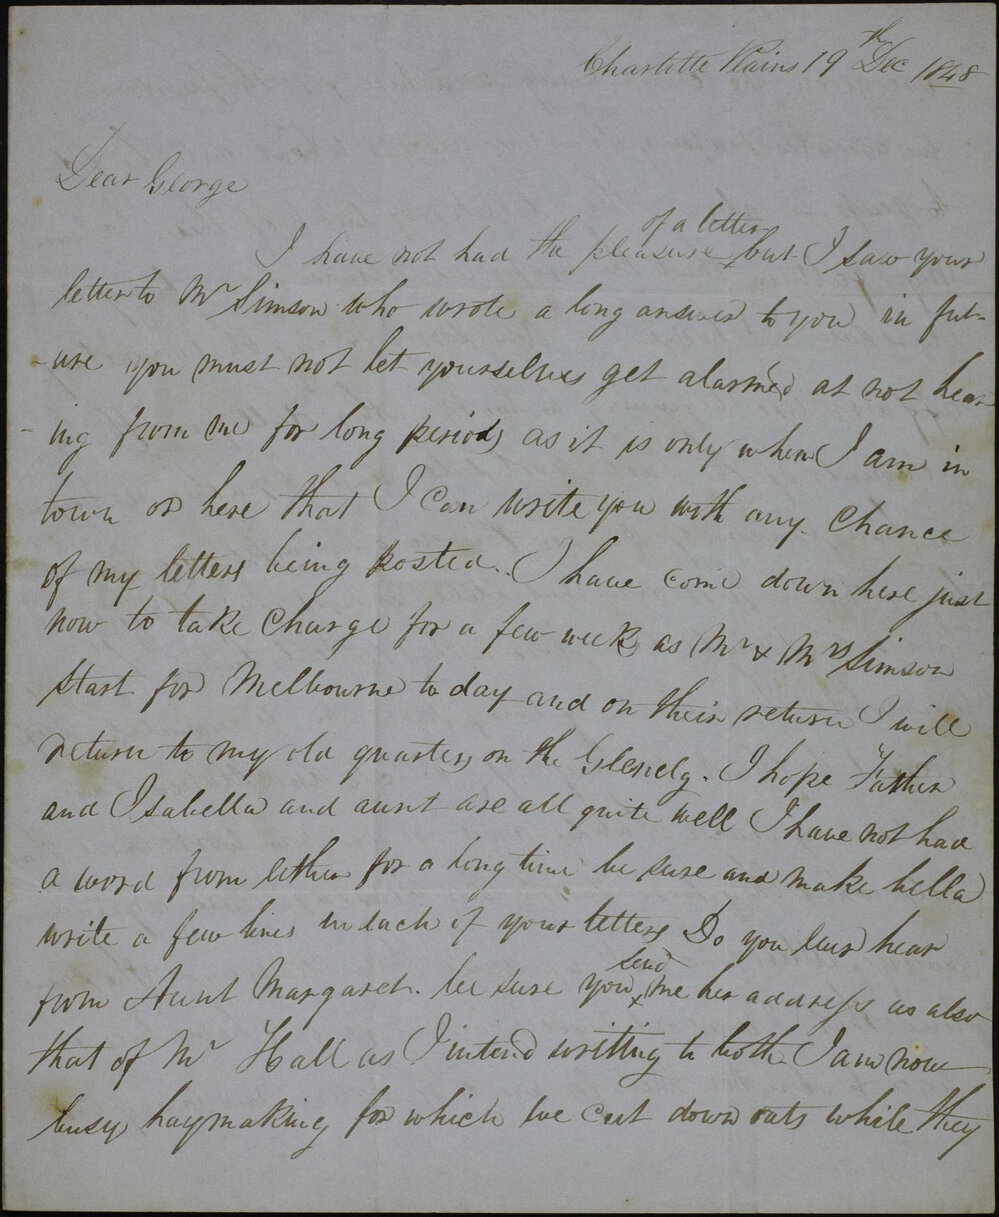 Charlotte Plains 19th Dec 1848
Dear George
I have not had the pleasure of a letter but I saw your
letter to Mr Simson who wrote a long answer to you in fut-
ure you must not let yourselves get alarmed at not hear
-ing from me for long periods as it is only when I am in
town or here that I can write you with any chance
of my letters being posted. I have come down here just
now to take charge for a few weeks as Mr & Mrs Simson
start for Melbourne to day and on their return I will
return to my old quarters on the Glenelg. I hope Father
and Isabella and aunt are all quite well I have not had
a word from either for a long time be sure and make bella
write a few lines in each of your letters Do you ever hear
from Aunt Margaret. be sure you send me her address as also
that of Mr Hall as I intend writting to both I am now
busy haymaking for which we cut down oats while they